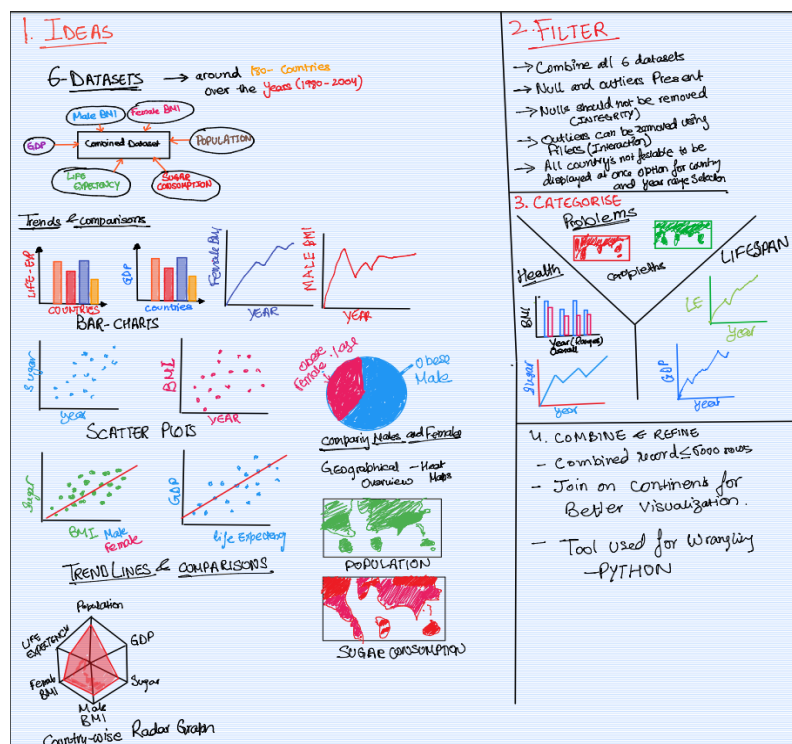 1. IDEAS
6-DATASETS → around 180- Countries
over the years (1980-2004)
Male BMI
Female BMI
GDP
Combined Dataset
POPULATION
LIFE EXPETENCY
SUGAR CONSUMPTION
Trends & comparisons
LIFE-EXP
COUNTRIES
GDP
countries
Female BMI
YEAR
MALE BMI
YEAR
BAR-CHARTS
Sugar
year
BMI
YEAR
SCATTER PLOTS
Obese Female
Obese Male
Comparing Males and Female
Sugar
BMI Male
Female
GDP
life Expectency
TRENDLINES & COMPARISONS
Geographical - Heat
Overview Maps
POPULATION
SUGAR CONSUMPTION
Population
GDP
Sugar
Male BMI
Female BMI
LIFE EXPETENCY
Country-wise Radar Graph
2. FILTER
→ Combine all 6 datasets
→ Null and outliers Present
→ Nulls should not be removed
(INTEGRITY)
→ Outliers can be using
Filters (Interaction)
→ All country's not feasible to be
displayed at once option for country
and year range selection
3. CATEGORISE
Problems
Health
LIFESPAN
BMI
Year (Ranges)
Overall
Sugar
year
LE
Year
GDP
Year
4. COMBINE & REFINE
- Combined record ≤ 5000 rows
- Join on continent for
Better Visualization.
- Tool used for Wrangling
- PYTHON